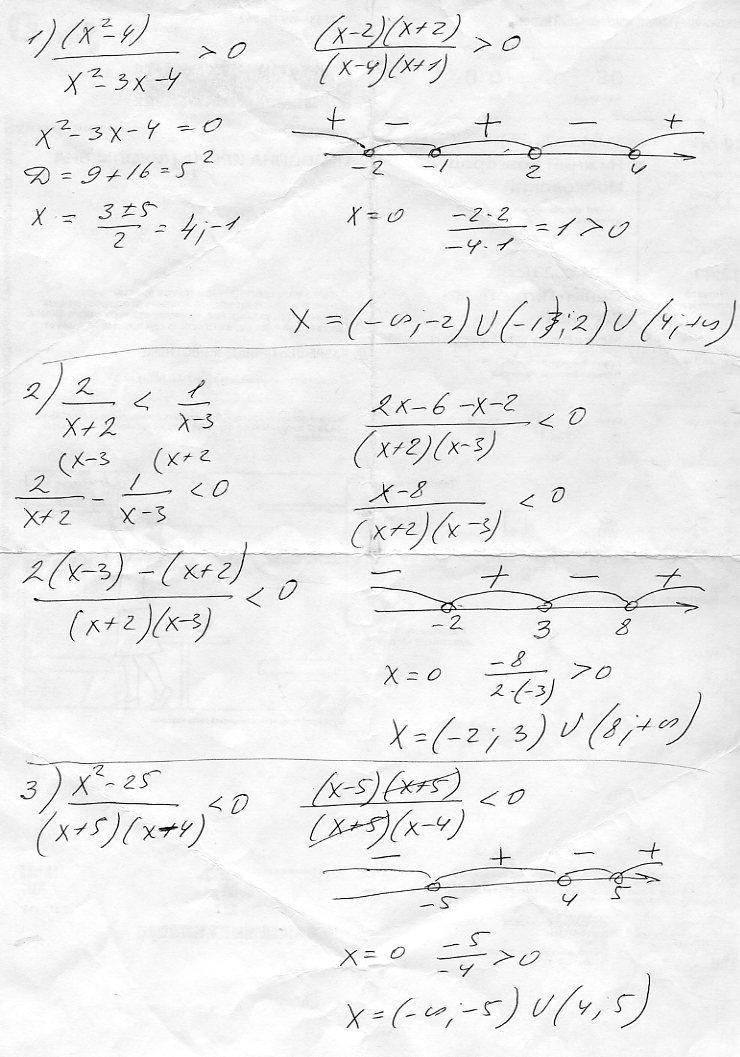 1) (x²-4) / (x²-3x-4) > 0
(x-2)(x+2) / (x-4)(x+1) > 0
x²-3x-4 = 0
D = 9+16 = 5²
x = (3±5)/2 = 4; -1
+ - + - +
-2 -1 2 4
x = 0 (-2·2)/(-4·1) = 1 > 0
x = (-∞; -2) ∪ (-1; 2) ∪ (4; +∞)
2) 2/(x+2) < 1/(x-3)
(x-3 (x+2
2/(x+2) - 1/(x-3) < 0
(2(x-3) - (x+2)) / (x+2)(x-3) < 0
(2x-6-x-2) / (x+2)(x-3) < 0
(x-8) / (x+2)(x-3) < 0
- + - +
-2 3 8
x = 0 -8/(2·(-3)) > 0
x = (-2; 3) ∪ (8; +∞)
3) (x²-25) / (x+5)(x-4) < 0
(x-5)(x+5) / (x+5)(x-4) < 0
- + - +
-5 4 5
x = 0 -5/-4 > 0
x = (-∞; -5) ∪ (4; 5)